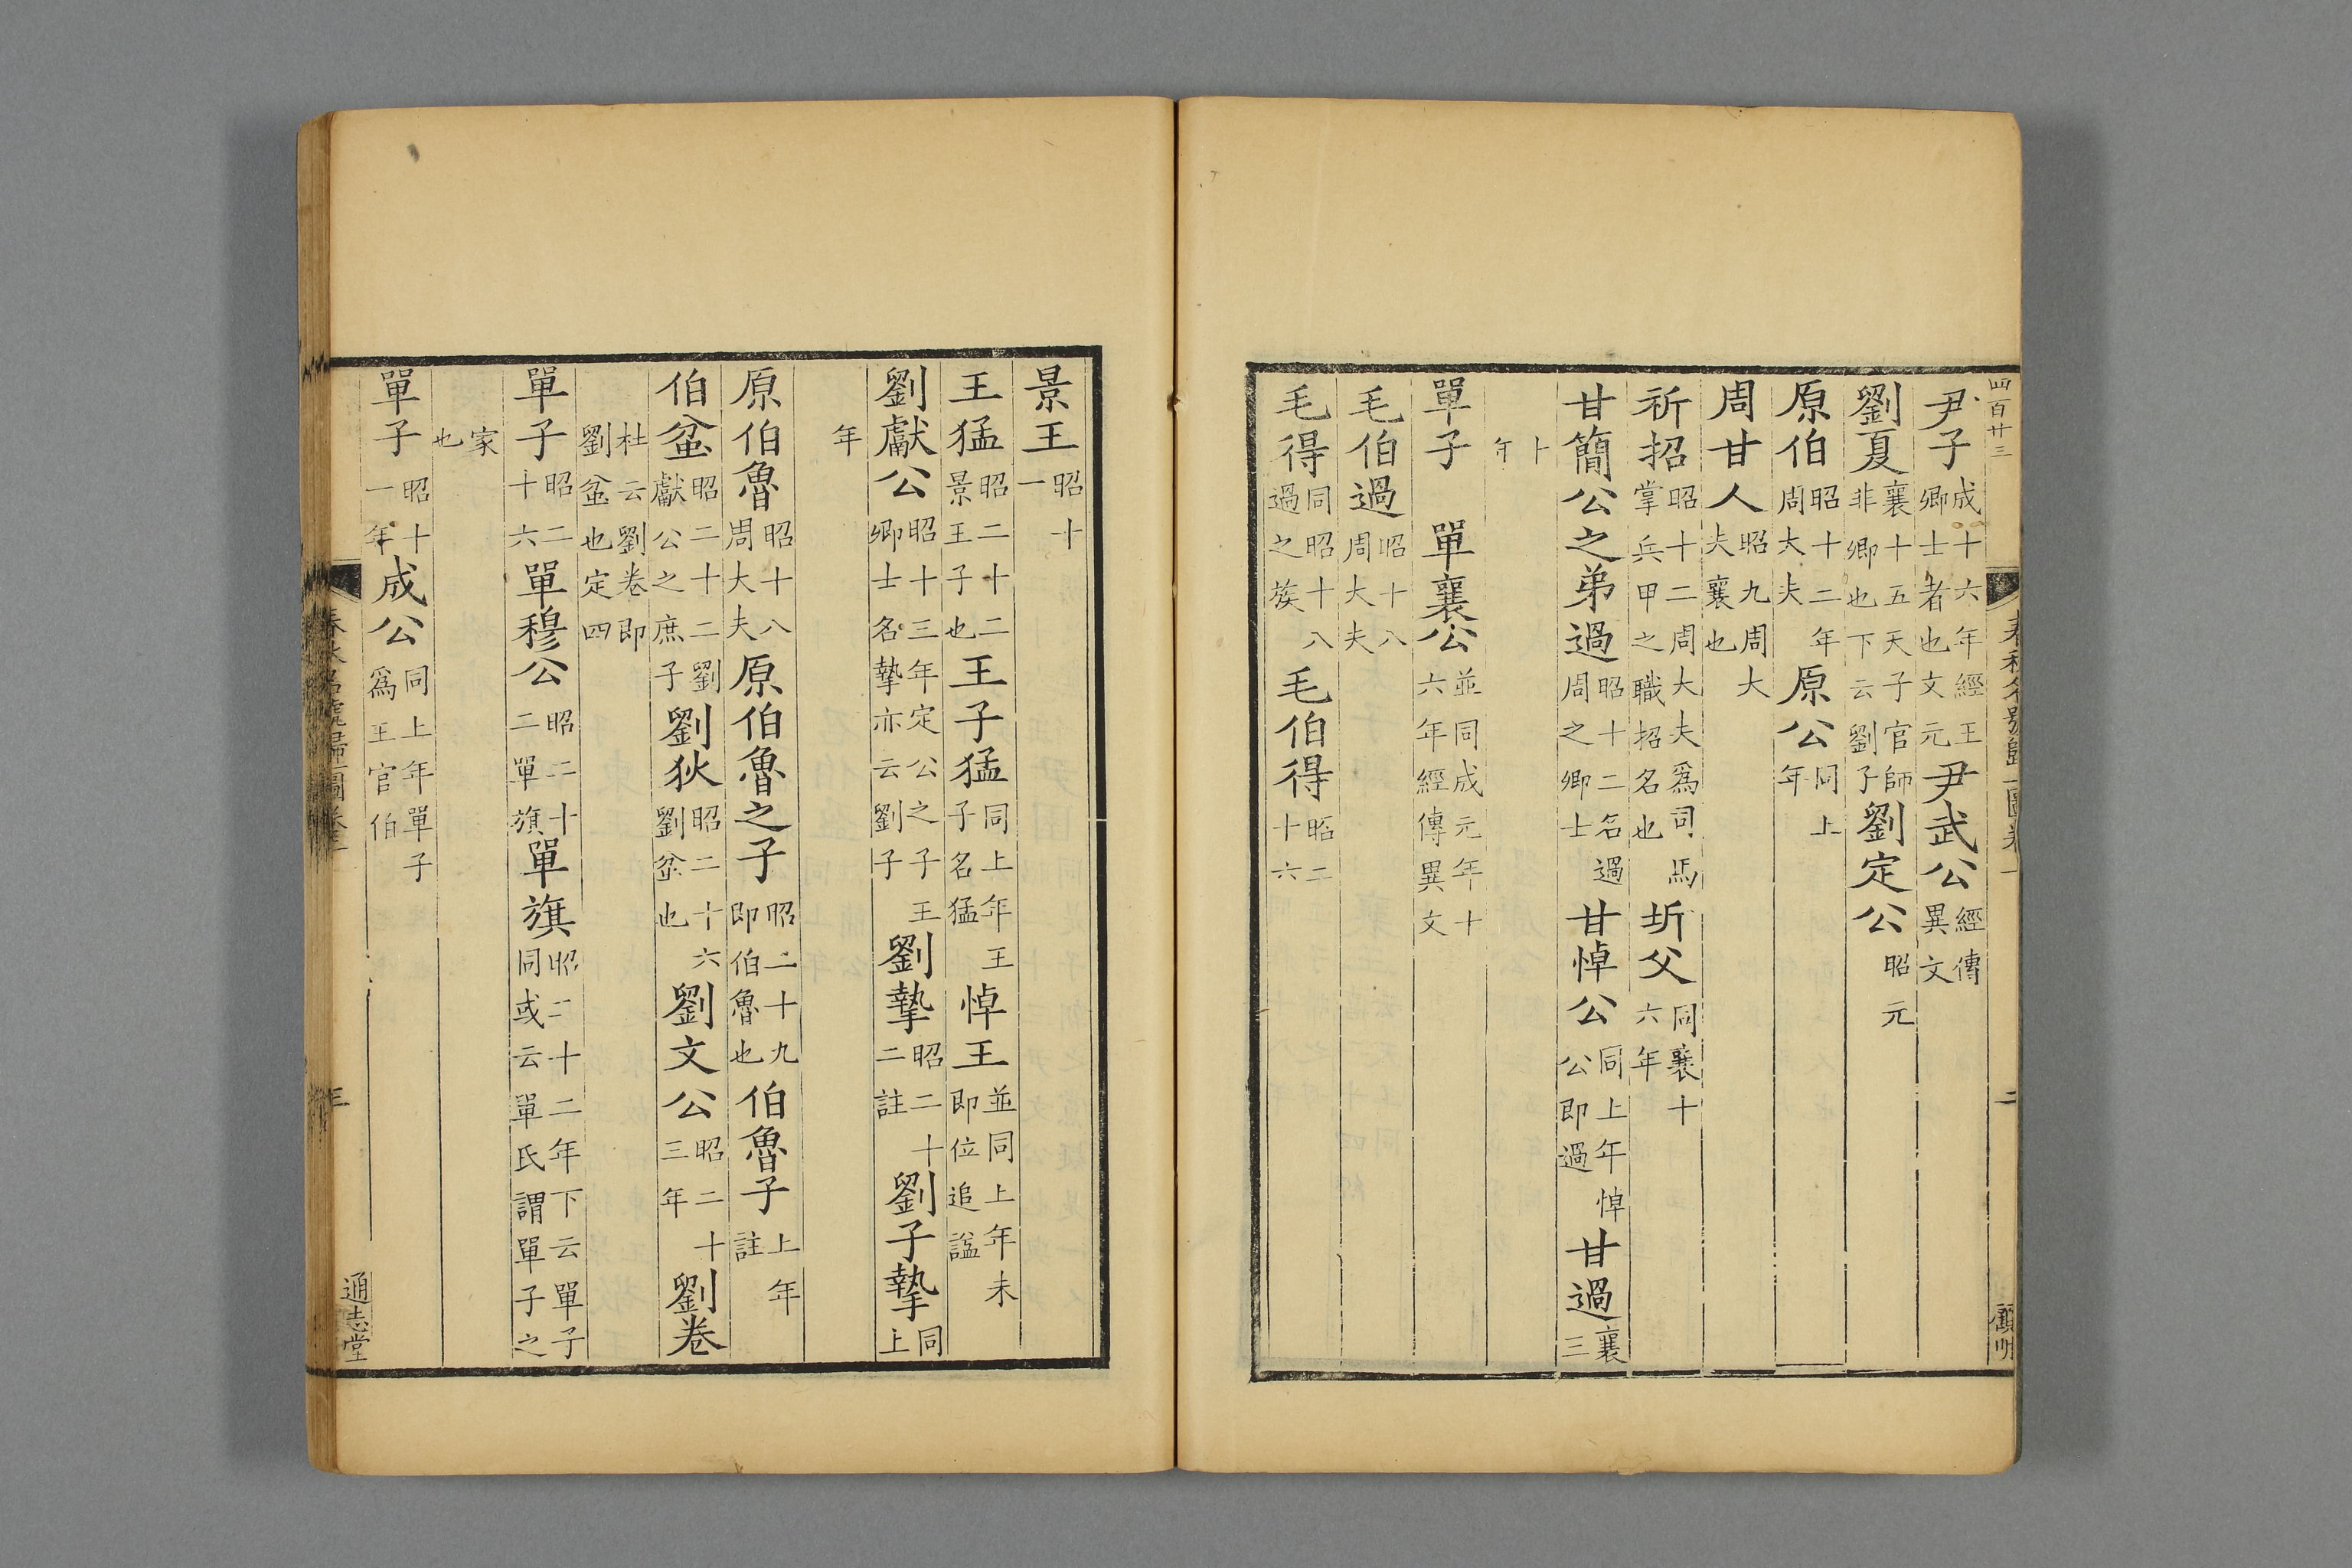 四百廿三
尹子成十六年經王卿士者也文元尹武公經傳異文
劉夏襄十五天子官師非卿也下云劉子劉定公昭元
原伯昭十二年周大夫原公同上年
周甘人昭九周大夫襄也
祈招昭十二周大夫爲司馬掌兵甲之職招名也圻父同襄十六年
甘簡公之弟過昭十二名過周之卿士甘悼公同上年悼公即過甘過襄三
十年
單子 單襄公並同成元年十六年經傳異文
毛伯過昭十八周大夫
毛得同昭十八過之族毛伯得昭二十六
春秋名號歸一圖卷
二
顧明
景王昭十一
王猛昭二十二景王子也王子猛同上年王子名猛悼王並同上年未即位追諡
劉獻公昭十三年定公之子王卿士名摯亦云劉子劉摯昭二十二註劉子摯同上
年
原伯魯昭十八周大夫原伯魯之子昭二十九即伯魯也伯魯子上年註
伯盆昭二十二劉獻公之庶子劉狄昭二十六劉盆也劉文公昭二十三年劉卷
杜云劉卷即劉盆也定四
單子昭二十六單穆公昭二十二單旗單旗昭二十二年下云單子同或云單氏謂單子之
家也
單子昭十一年成公同上年單子爲王官伯
春秋名號歸一圖卷
三
通志堂